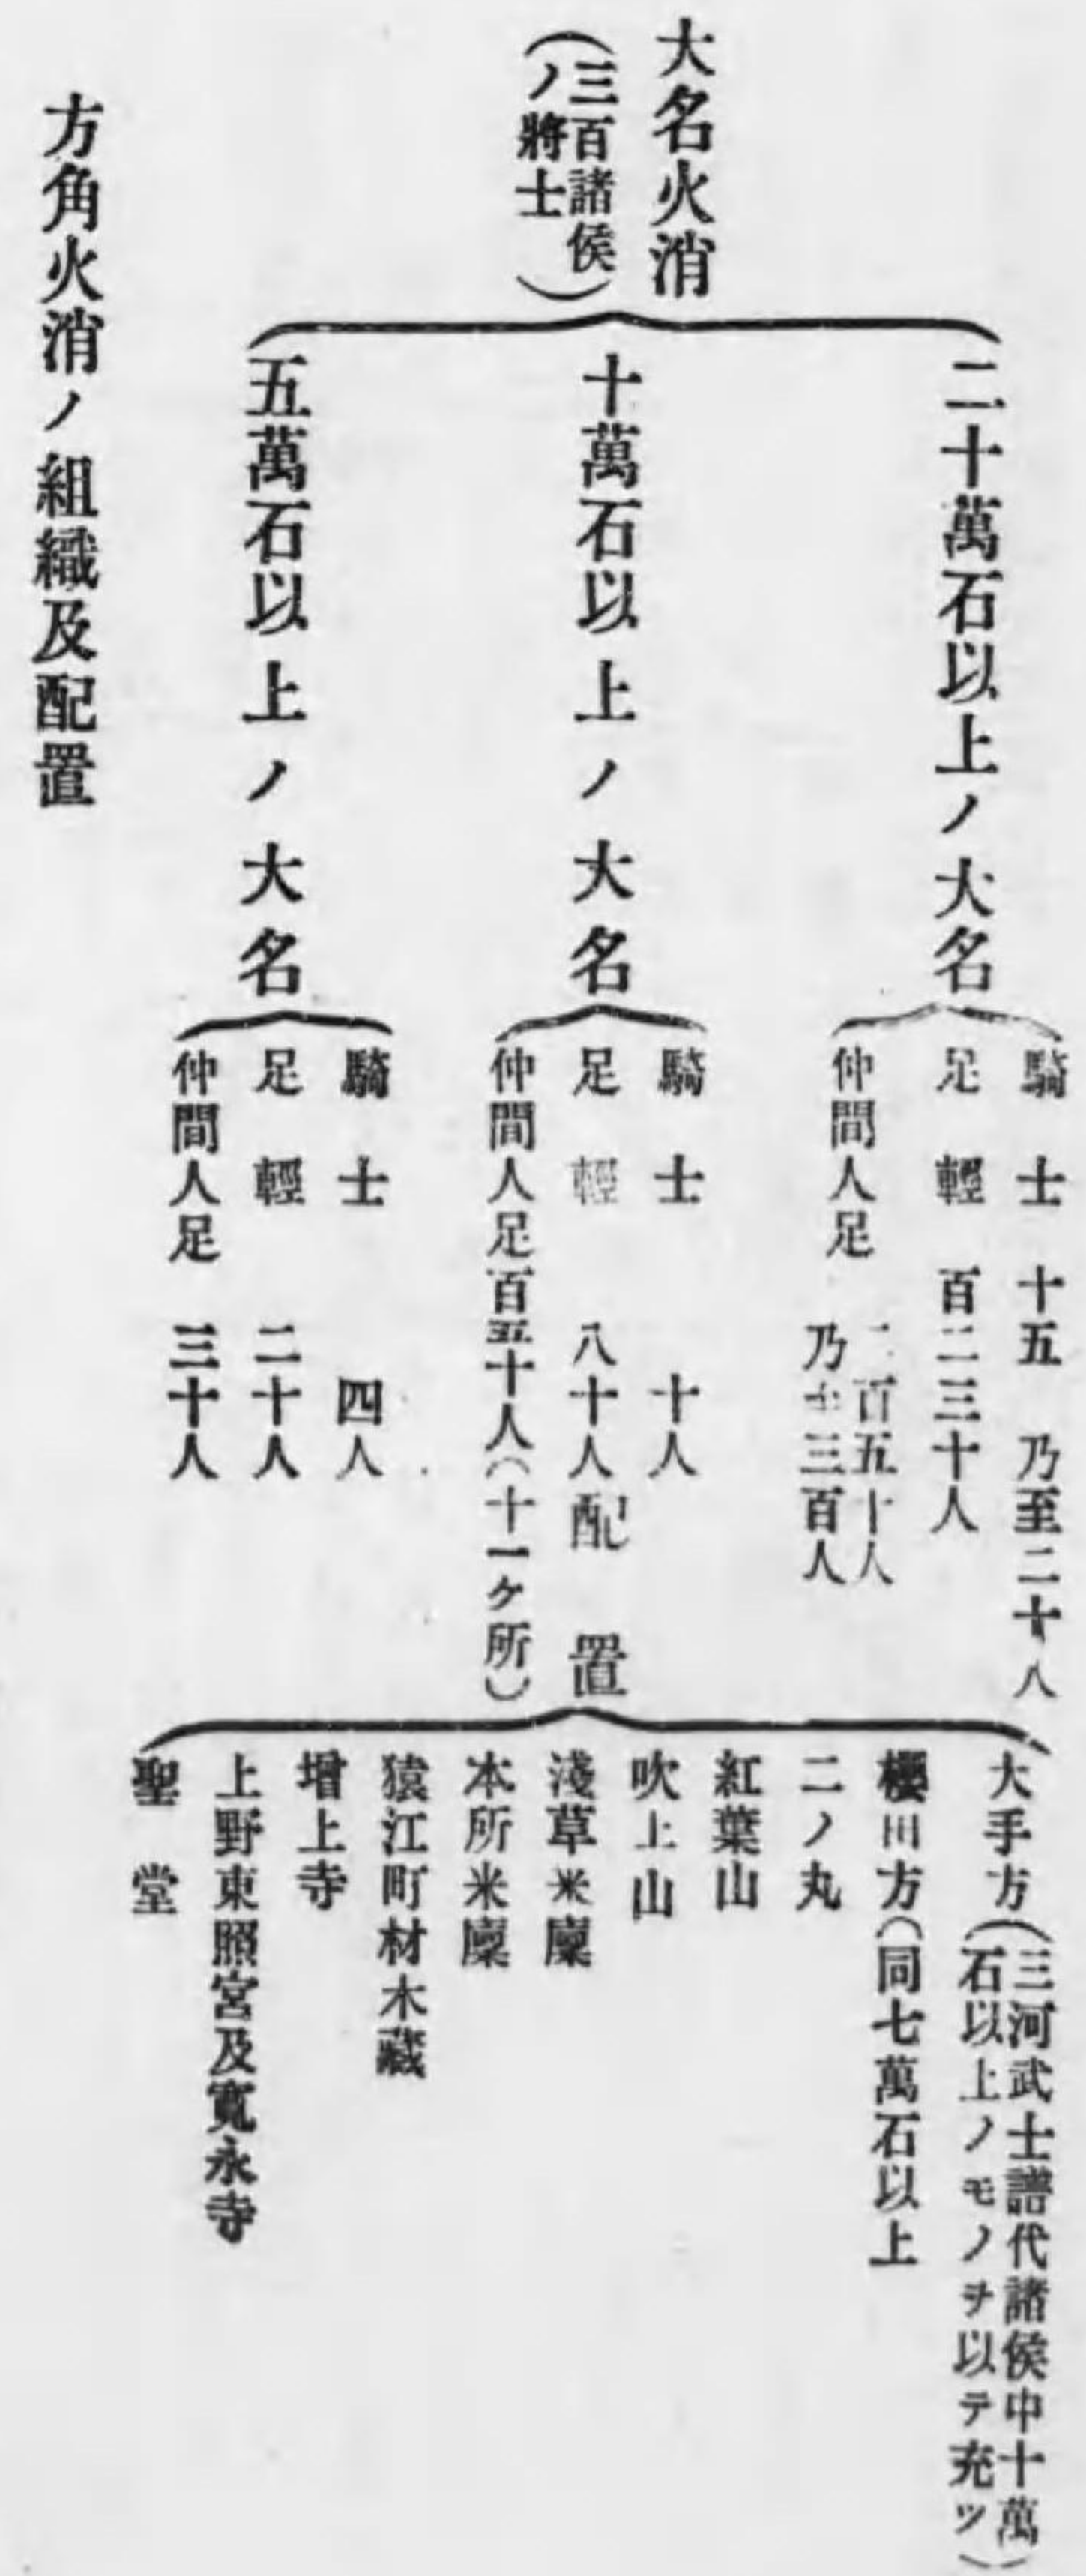 大名火消
(三百諸侯
ノ將士)
二十萬石以上ノ大名
騎士 十五 乃至二十人
足輕 百二三十人
仲間人足
二百五十人
乃至三百人
十萬石以上ノ大名
騎士 十人
足輕 八十人
仲間人足百五十人
五萬石以上ノ大名
騎士 四人
足輕 二十人
仲間人足 三十人
配置
(十一ケ所)
大手方
(三河武士譜代諸侯中十萬
石以上ノモノヲ以テ充ツ)
櫻田方(同七萬石以上
二ノ丸
紅葉山
吹上山
淺草米廩
本所米廩
猿江町材木藏
增上寺
上野東照宮及寬永寺
聖堂
方角火消ノ組織及配置